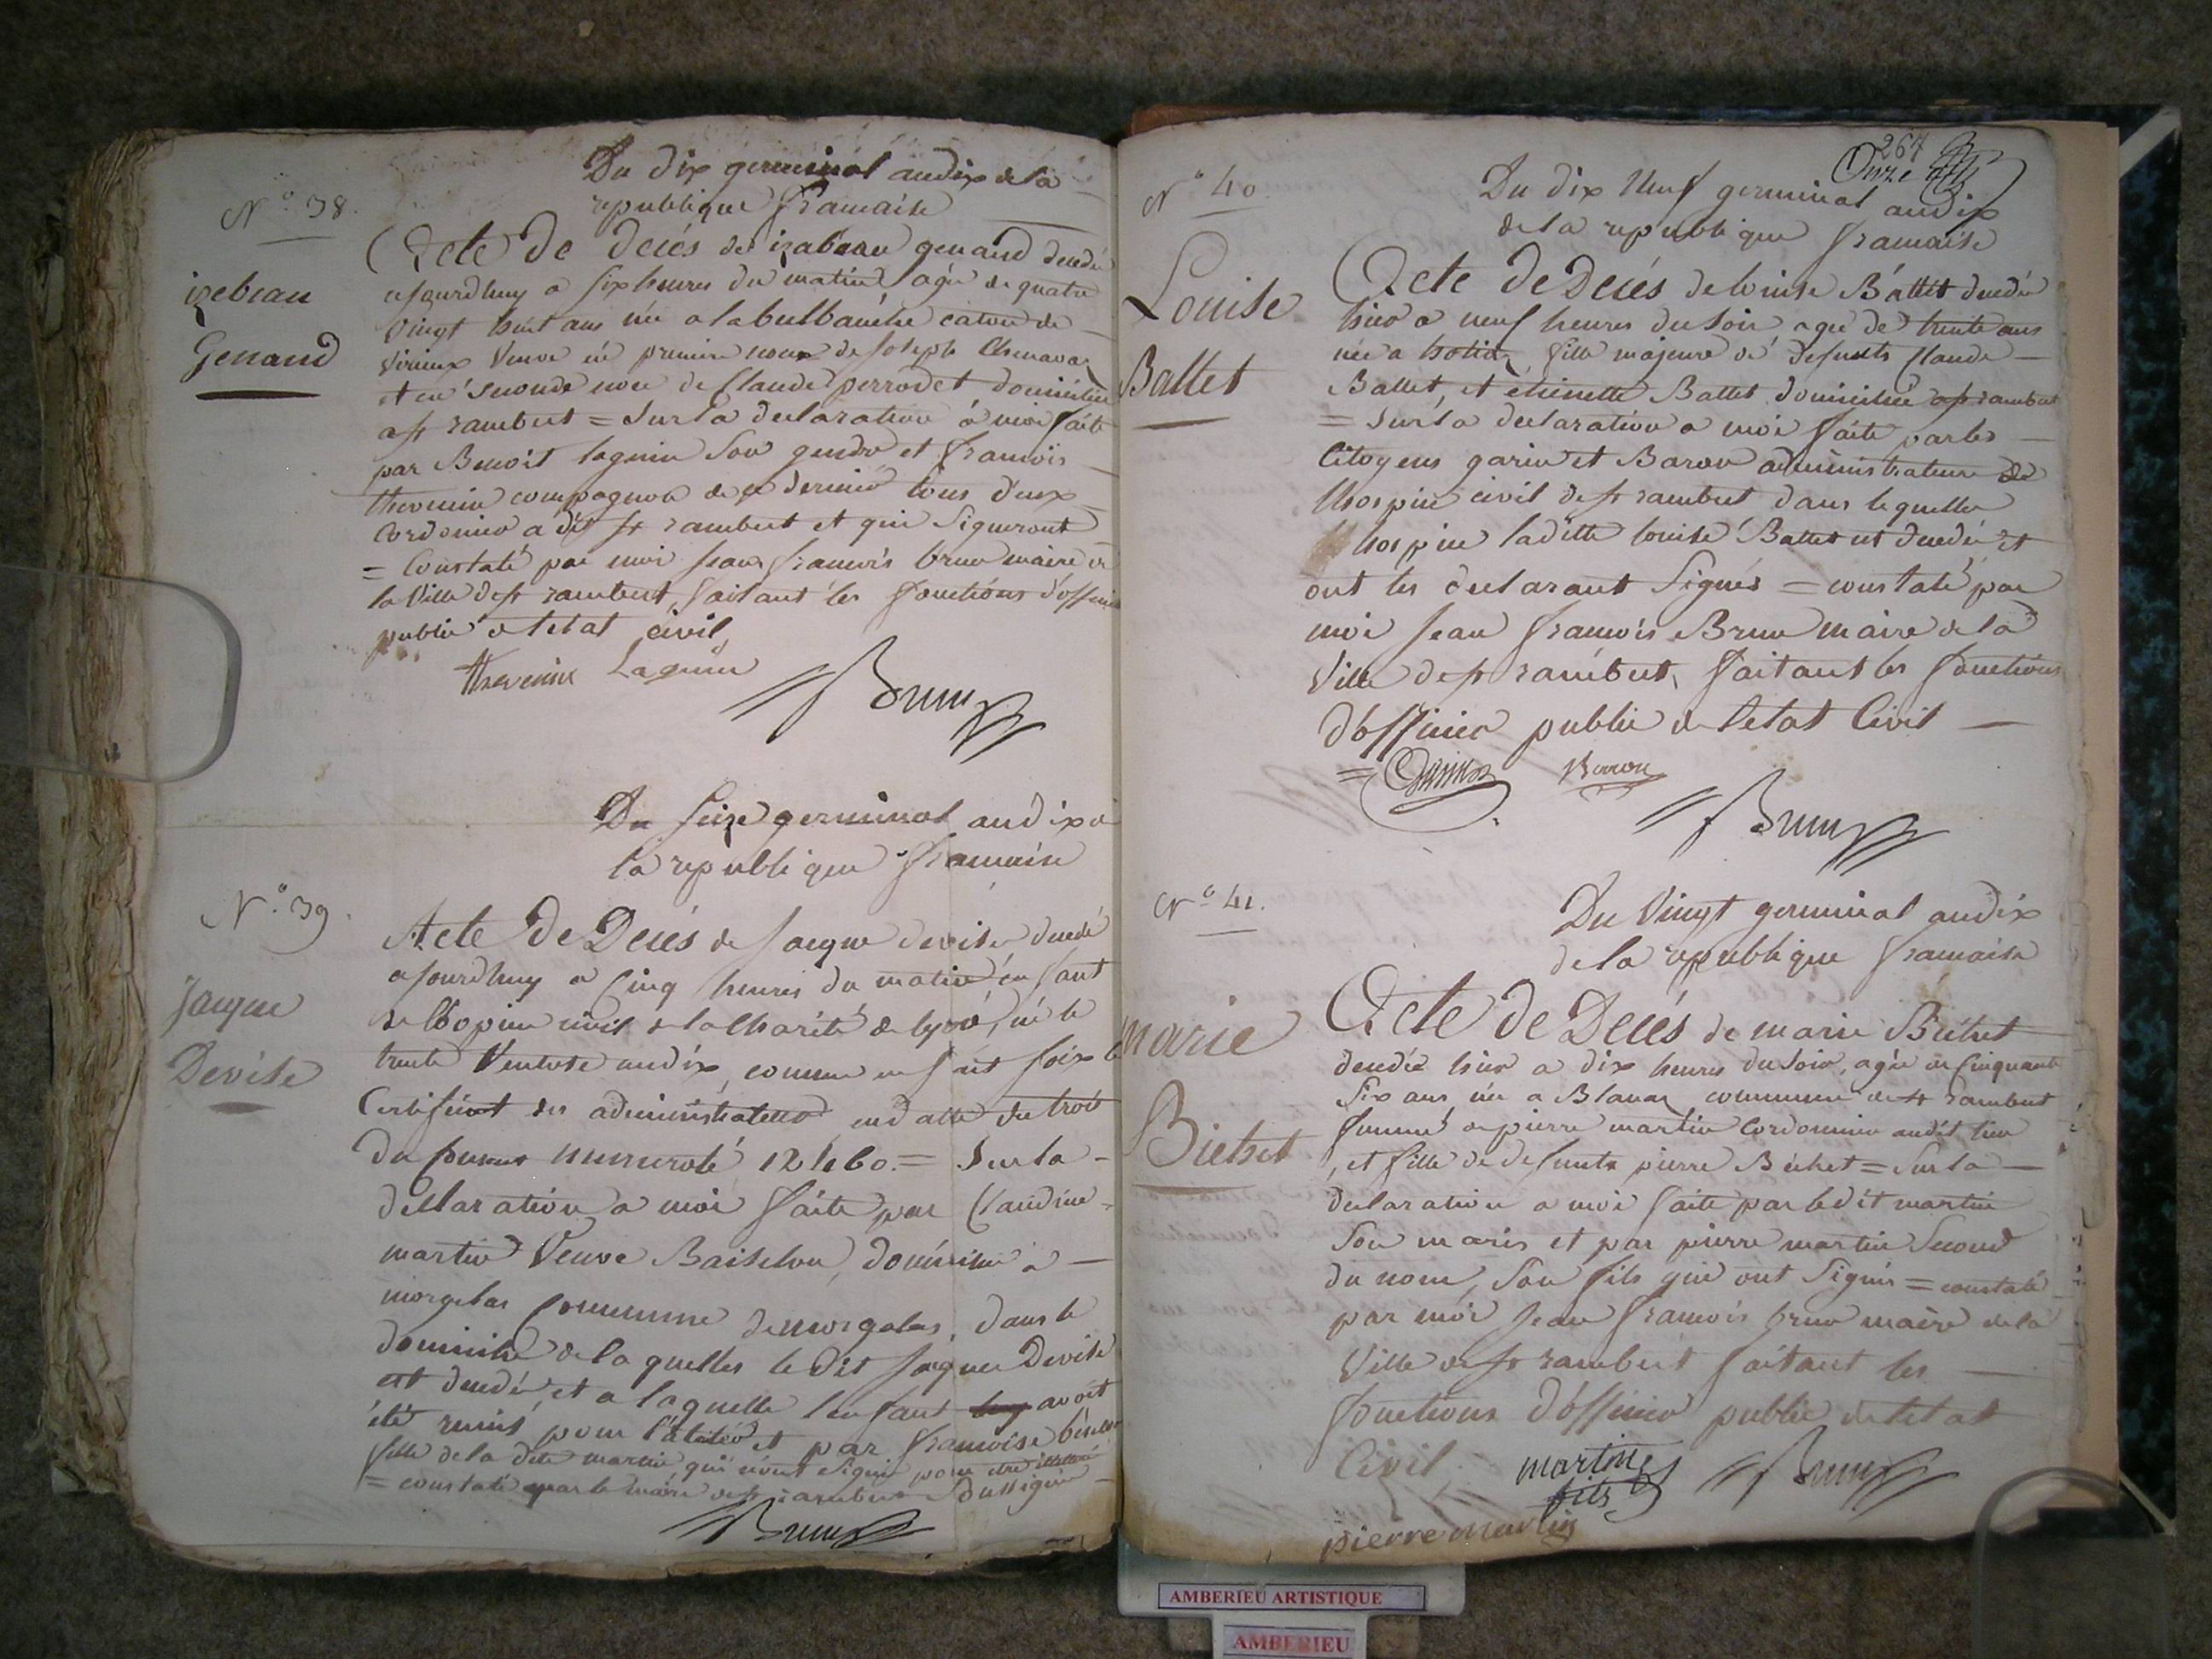 N° 38.
izebeau
Genand
Du dix germinal an dix de la
republique francaise
Acte de decés de izabeau genand decedée
aujourdhuy a six heures du matin agée de quatre
vingt huit ans née a la
veuve en premiere noux de joseph
et en seconde noce de claude perrodet domiciliée
a st rambert = sur la declaration a moi faite
par Benoit laguin son gendre et francois
thevenin compagnon de ce dernier tous deux
cordonier a dit st rambert et qui signeront
= constaté par moi jean francois brun maire de
la ville de st rambert, faisant les fonctions d'officier
public de letat civil
thevenin Laguin
Brun
Du seize germinal an dix de
la republique francaise
N° 39.
Jacque
Devise
Acte de Decés de jacque devise decedé
aujourdhuy a cinq heures du matin enfant
de lhopice civil de la charité de lyon, né le
trente ventose an dix, comme en fait foix le
certificat des administrateurs en datte du trois
du numeroté 12460. = sur la
declaration a moi faite par claudine
martin veuve domiciliée a
morgelas commune de morgelas, dans le
domicile de la quelles le dit jacque Devise
est decedé, et a laquelle lenfant avoit
été remis pour l'alaiter et par francoise
fille de la dite martin, qui n'ont signé pour etre illettrée
= constaté par le maire de st rambert soussigné
Brun
267
Onze
N° 40.
Louise
Ballet
Du dix neuf germinal an dix
de la republique francaise
Acte de Decés de louise Ballet decedée
hier a neuf heures du soir agée de trente ans
née a fille majeure de defunts claude
Ballet, et etienette Ballet domiciliée a st rambert
= sur la declaration a moi faite par les
citoyens garin et Baron administrateur de
lhospice civil de st rambert dans lequelle
hospice laditte louise Ballet est decedée et
ont les declarant signés = constaté par
moi jean francois Brun maire de la
ville de st rambert, faisant les fonctions
d'officier public de letat civil
= Garin Baron
Brun
N° 41.
marie
Bichet
Du vingt germinal an dix
de la republique francaise
Acte de Decés de marie Bichet
decedée hier a dix heures du soir, agée de cinquante
six ans, née a Blanaz commune de st rambert
femme de pierre martin cordonnier audit lieu
, et fille de defunts pierre Bichet = sur la
declaration a moi faite par ledit martin
son maris et par pierre martin second
du nom, son fils qui ont signés = constaté
par moi jean francois brun maire de la
ville de st rambert faisant les
fonctions d'officier public de letat
civil. martin
fils
Brun
pierre martin
AMBERIEU ARTISTIQUE
AMBERIEU